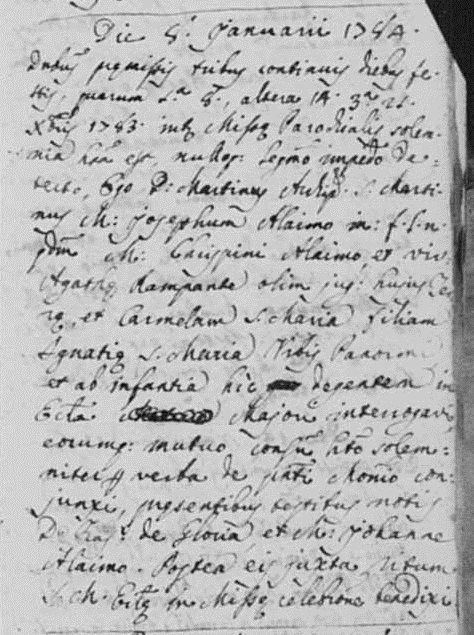 Die 8. Januarii 1784.
Dnbus premissis tribus continuis diebus fe-
stis, quarum 1.a 8., altera 14. 3.a 21.
Xbris 1783. inter Missae Parochialis solem-
nia hita est, nulloq: legmo impedto de-
tecto, Ego D: Martinus S. Marti-
nus M: Josephum Alaimo in: f. l. n.
qdm M: Chrispini Alaimo, et viv.
Agathae Rampante olim jug: hujus Ter-
rae, et Carmelam S. Maria filiam
Ignatiae S. Maria Urbis Panormi
et ab infantia hic degentem in
Ectia Majori interrogavi
eorumq: mutuo consu hito solem-
niter p verba de pnti Monio con-
junxi, presentibus testibus notis
D: de Giovna, et M: Johanne
Alaimo. Postea eis juxta Ritum
S. M. Ectae in Missae celebrone benedixi